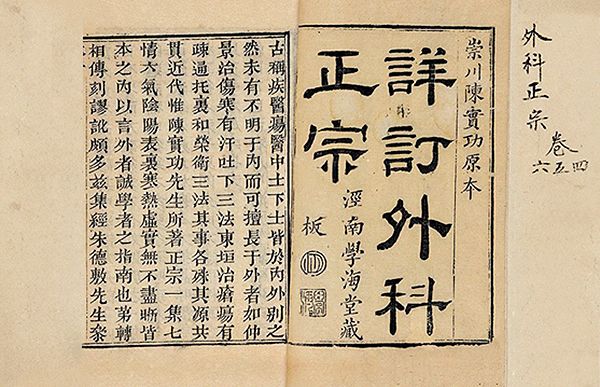 外科正宗 卷四五六
崇川陳實功原本
詳訂外科
正宗
涇南學海堂藏
板
古稱疾醫瘍醫中士下士皆於內外別之
然未有不明于內而可擅長于外者如仲
景治傷寒有汗吐下三法東垣治瘡瘍有
疎通托裏和榮衛三法其事各殊其源共
貫近代惟陳實功先生所著正宗一集七
情六氣陰陽表裏寒熱虛實無不盡晰皆
本之內以言外者誠學者之指南也第轉
相傳刻謬訛頗多茲集經朱德敷先生叅